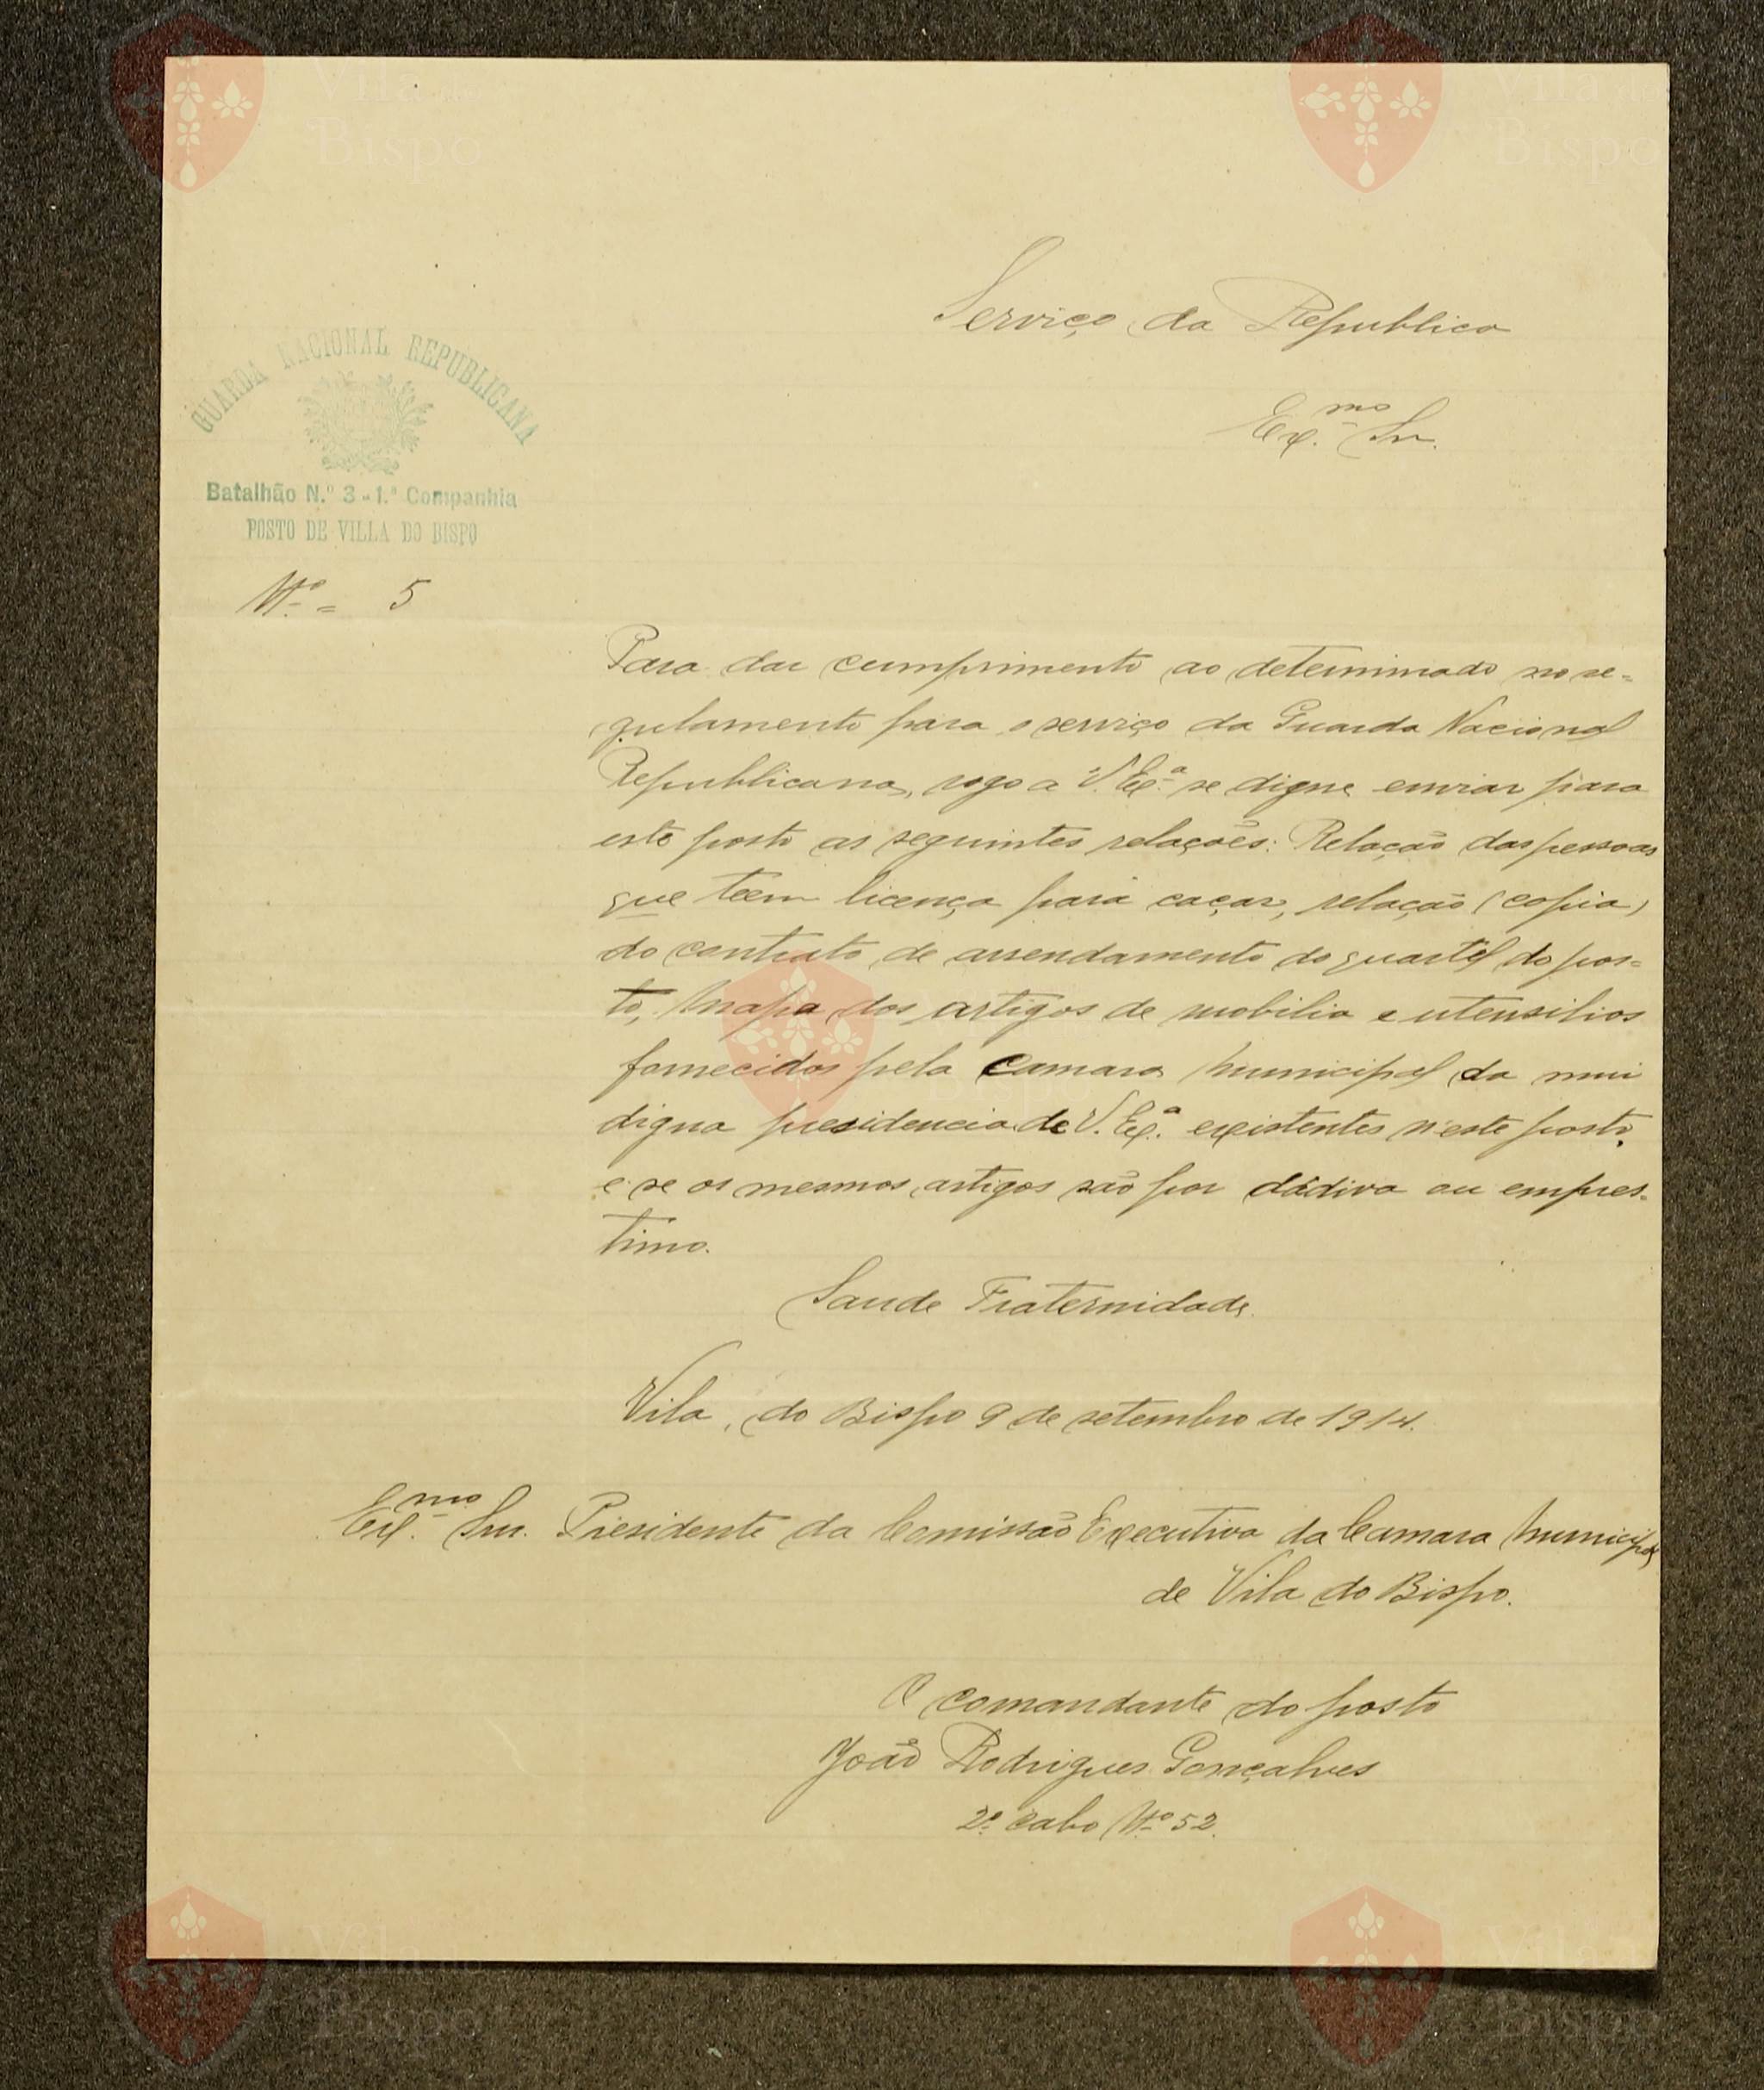 Serviço da Republica
Ex.mo Snr.
GUARDA NACIONAL REPUBLICANA
Batalhão N.º 3 - 1.ª Companhia
POSTO DE VILLA DO BISPO
Nº = 5
Para dar cumprimento ao determinado no re-
gulamento para o serviço da Guarda Nacional
Republicana, rogo a V. Ex.ª se digne enviar para
este posto as seguintes relações: Relação das pessoas
que teem licença para caçar, relação (copia)
do contrato de arrendamento do quartel do pos-
to, Mapa dos artigos de mobilia e utensilios
fornecidos pela Camara Municipal da mui
digna presidencia de V. Ex.ª existentes n'este posto,
e se os mesmos artigos são por dádiva ou empres-
timo.
Saude Fraternidade.
Vila, do Bispo 9 de setembro de 1914.
Ex.mo Snr. Presidente da Comissão Executiva da Camara Municipal
de Vila do Bispo.
O comandante do posto
João Rodrigues Gonçalves
2º cabo Nº 52.
Vila do
Bispo
Vila do
Bispo
Bispo
Vila do
Bispo
Vila do
Bispo